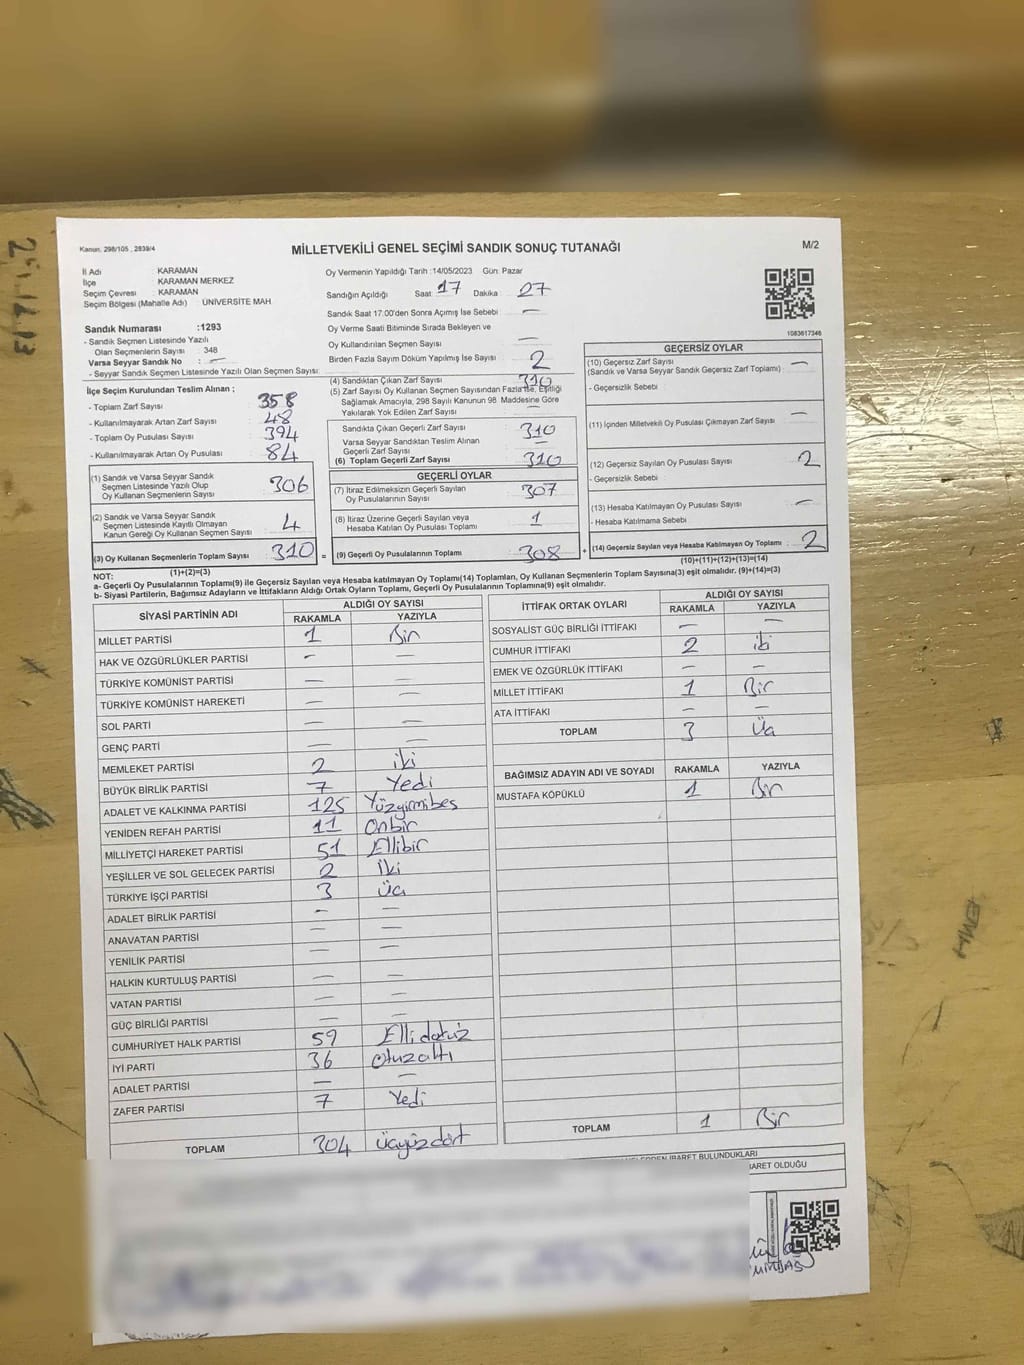 Kanun. 298/105 , 2839/4
MİLLETVEKİLİ GENEL SEÇİMİ SANDIK SONUÇ TUTANAĞI
M/2
İl Adı : KARAMAN
İlçe KARAMAN MERKEZ
Seçim Çevresi : KARAMAN
Seçim Bölgesi (Mahalle Adı) : ÜNİVERSİTE MAH
Sandık Numarası :1293
- Sandık Seçmen Listesinde Yazılı
Olan Seçmenlerin Sayısı : 348
Varsa Seyyar Sandık No : —
- Seyyar Sandık Seçmen Listesinde Yazılı Olan Seçmen Sayısı:
Oy Vermenin Yapıldığı Tarih :14/05/2023 Gün: Pazar
Sandığın Açıldığı Saat: 17 Dakika : 27
Sandık Saat 17.00'den Sonra Açımış İse Sebebi : —
Oy Verme Saati Bitiminde Sırada Bekleyen ve
Oy Kullandırılan Seçmen Sayısı : —
Birden Fazla Sayım Döküm Yapılmış İse Sayısı : 2
1083617346
İlçe Seçim Kurulundan Teslim Alınan ;
- Toplam Zarf Sayısı : 358
- Kullanılmayarak Artan Zarf Sayısı : 48
- Toplam Oy Pusulası Sayısı : 394
- Kullanılmayarak Artan Oy Pusulası : 84
(1) Sandık ve Varsa Seyyar Sandık
Seçmen Listesinde Yazılı Olup
Oy Kullanan Seçmenlerin Sayısı 306
(2) Sandık ve Varsa Seyyar Sandık
Seçmen Listesinde Kayıtlı Olmayan
Kanun Gereği Oy Kullanan Seçmen Sayısı 4
(3) Oy Kullanan Seçmenlerin Toplam Sayısı 310 =
(1)+(2)=(3)
(4) Sandıktan Çıkan Zarf Sayısı : 310
(5) Zarf Sayısı Oy Kullanan Seçmen Sayısından Fazla İse, Eşitliği
Sağlamak Amacıyla, 298 Sayılı Kanunun 98. Maddesine Göre
Yakılarak Yok Edilen Zarf Sayısı : —
Sandıkta Çıkan Geçerli Zarf Sayısı : 310
Varsa Seyyar Sandıktan Teslim Alınan
Geçerli Zarf Sayısı : —
(6) Toplam Geçerli Zarf Sayısı : 310
GEÇERLİ OYLAR
(7) İtiraz Edilmeksizin Geçerli Sayılan
Oy Pusulalarının Sayısı : 307
(8) İtiraz Üzerine Geçerli Sayılan veya
Hesaba Katılan Oy Pusulası Toplamı : 1
(9) Geçerli Oy Pusulalarının Toplamı : 308 +
GEÇERSİZ OYLAR
(10) Geçersiz Zarf Sayısı
(Sandık ve Varsa Seyyar Sandık Geçersiz Zarf Toplamı) : —
- Geçersizlik Sebebi :
(11) İçinden Milletvekili Oy Pusulası Çıkmayan Zarf Sayısı : —
(12) Geçersiz Sayılan Oy Pusulası Sayısı : 2
- Geçersizlik Sebebi :
(13) Hesaba Katılmayan Oy Pusulası Sayısı : —
- Hesaba Katılmama Sebebi :
(14) Geçersiz Sayılan veya Hesaba Katılmayan Oy Toplamı : 2
(10)+(11)+(12)+(13)=(14)
NOT:
a- Geçerli Oy Pusulalarının Toplamı(9) ile Geçersiz Sayılan veya Hesaba katılmayan Oy Toplamı(14) Toplamları, Oy Kullanan Seçmenlerin Toplam Sayısına(3) eşit olmalıdır. (9)+(14)=(3)
b- Siyasi Partilerin, Bağımsız Adayların ve İttifakların Aldığı Ortak Oyların Toplamı, Geçerli Oy Pusulalarının Toplamına(9) eşit olmalıdır.
SİYASİ PARTİNİN ADI ALDIĞI OY SAYISI
RAKAMLA YAZIYLA
MİLLET PARTİSİ 1 Bir
HAK VE ÖZGÜRLÜKLER PARTİSİ — —
TÜRKİYE KOMÜNİST PARTİSİ — —
TÜRKİYE KOMÜNİST HAREKETİ — —
SOL PARTİ — —
GENÇ PARTİ — —
MEMLEKET PARTİSİ 2 iki
BÜYÜK BİRLİK PARTİSİ 7 Yedi
ADALET VE KALKINMA PARTİSİ 125 Yüzyirmibeş
YENİDEN REFAH PARTİSİ 11 Onbir
MİLLİYETÇİ HAREKET PARTİSİ 51 Ellibir
YEŞİLLER VE SOL GELECEK PARTİSİ 2 İki
TÜRKİYE İŞÇİ PARTİSİ 3 Üç
ADALET BİRLİK PARTİSİ — —
ANAVATAN PARTİSİ — —
YENİLİK PARTİSİ — —
HALKIN KURTULUŞ PARTİSİ — —
VATAN PARTİSİ — —
GÜÇ BİRLİĞİ PARTİSİ — —
CUMHURİYET HALK PARTİSİ 59 Ellidokuz
İYİ PARTİ 36 Otuzaltı
ADALET PARTİSİ — —
ZAFER PARTİSİ 7 Yedi
TOPLAM 304 üçyüzdört
İTTİFAK ORTAK OYLARI ALDIĞI OY SAYISI
RAKAMLA YAZIYLA
SOSYALİST GÜÇ BİRLİĞİ İTTİFAKI — —
CUMHUR İTTİFAKI 2 iki
EMEK VE ÖZGÜRLÜK İTTİFAKI — —
MİLLET İTTİFAKI 1 Bir
ATA İTTİFAKI — —
TOPLAM 3 Üç
BAĞIMSIZ ADAYIN ADI VE SOYADI RAKAMLA YAZIYLA
MUSTAFA KÖPÜKLÜ 1 Bir
TOPLAM 1 Bir
İBARET BULUNDUKLARI
BARET OLDUĞU